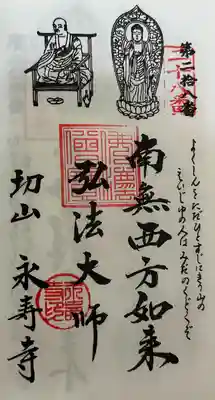 第二拾八番
よくしんをただひとすじにきり山の
えいじゅの人はみだのくどくぞ
南無西方如来
弘法大師
切山 永寿寺